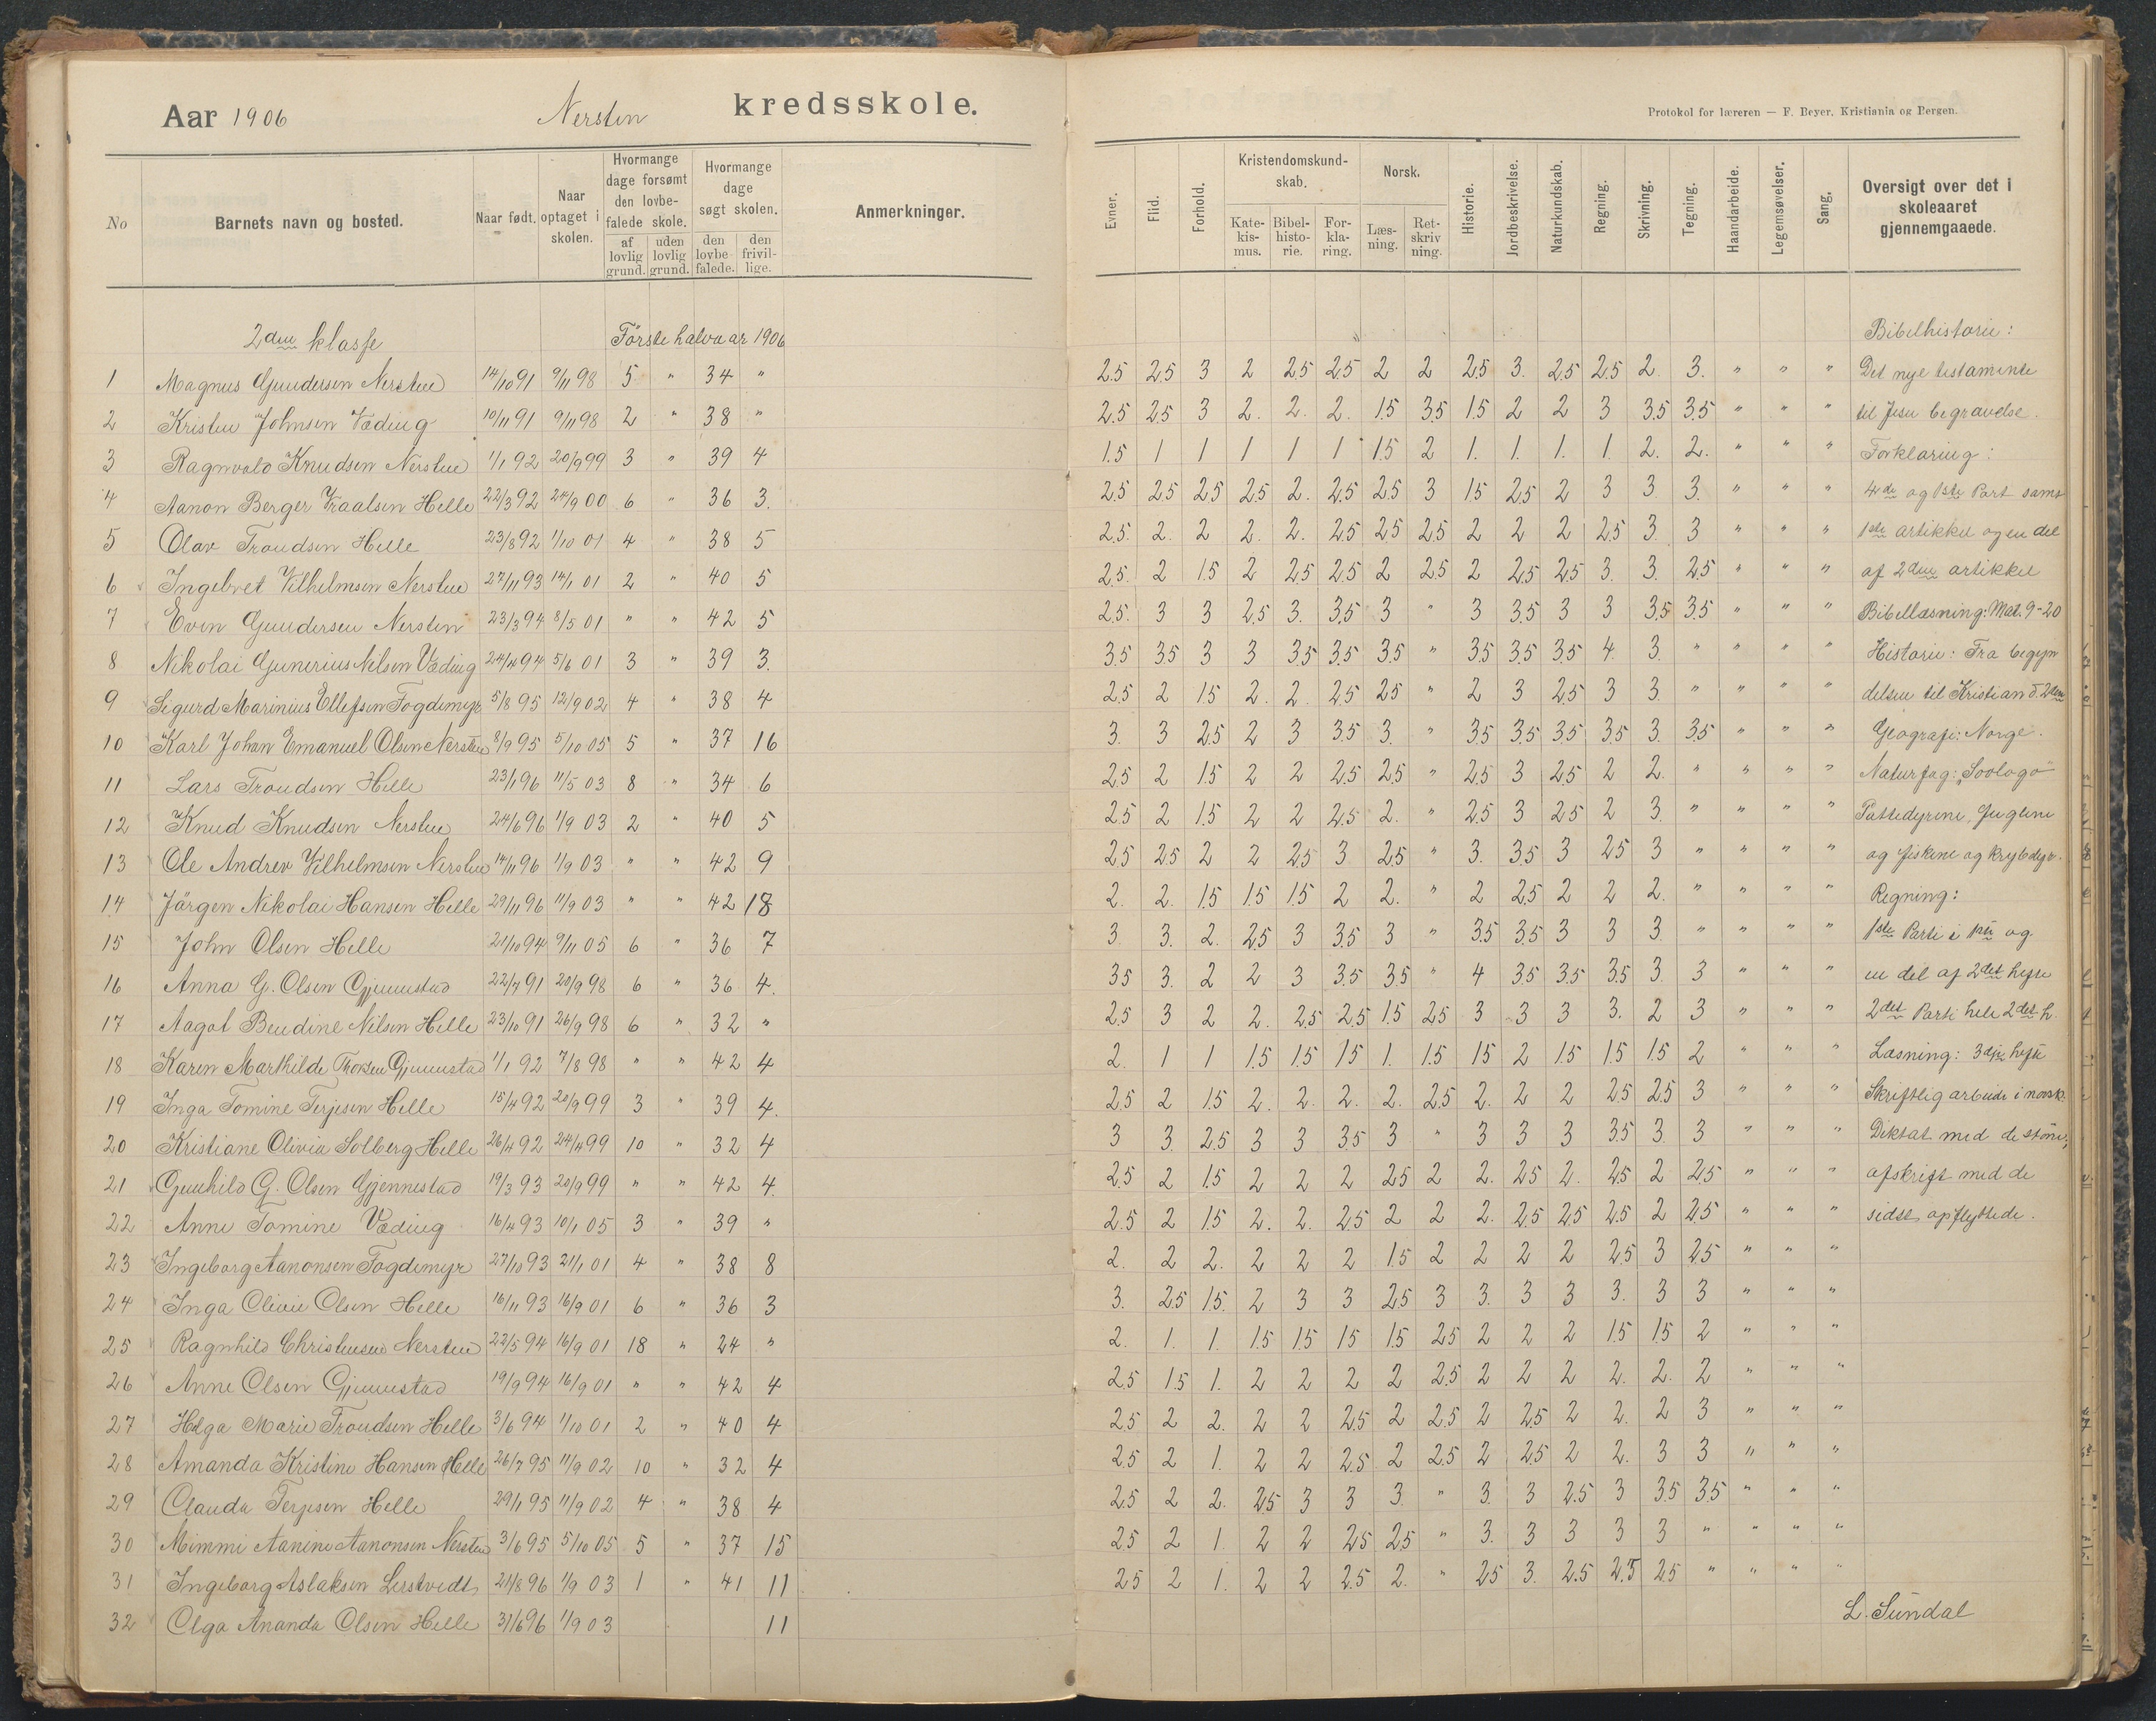 Aar 1906 Nersten kredsskole.
Protokol for læreren — F. Beyer, Kristiania og Bergen.
No Barnets navn og bosted. Naar født. Naar optaget i skolen. Hvormange dage forsømt den lovbefalede skole. af lovlig grund. uden lovlig grund. Hvormange dage søgt skolen. den lovbefalede. den frivillige. Anmerkninger.
Evner. Flid. Forhold. Kristendomskundskab. Katekismus. Bibelhistorie. Forklaring. Norsk. Læsning. Retskrivning. Historie. Jordbeskrivelse. Naturkundskab. Regning. Skrivning. Tegning. Haandarbeide. Legemsøvelser. Sang. Oversigt over det i skoleaaret gjennemgaaede.
2den klasse Første halvaar 1906 Bibelhistorie:
1 Magnus Gundersen Nersten 14/10 91 9/11 98 5 " 34 " 2.5 2.5 3 2 2.5 2.5 2 2 2.5 3. 2.5 2.5 2. 3. " " " Det nye testamente
2 Kristen Johnsen Væding 10/11 91 9/11 98 2 " 38 " 2.5 2.5 3 2. 2. 2. 1.5 3.5 1.5 2 2 3 3.5 3.5 " " " til Jesu begravelse.
3 Ragnvald Knudsen Nersten 1/1 92 20/9 99 3 " 39 4 1.5 1 1 1 1 1 1.5 2 1. 1. 1. 1. 2. 2. " " " Forklaring:
4 Aanon Berger Traalsen Helle 22/3 92 24/9 00 6 " 36 3. 2.5 2.5 2.5 2.5 2. 2.5 2.5 3 1.5 2.5 2 3 3 3. " " " 4de og 1ste Part samt
5 Olav Trondsen Helle 23/8 92 1/10 01 4 " 38 5 2.5. 2. 2 2. 2. 2.5 2.5 2.5 2 2 2 2.5 3. 3 " " " 1ste artikkel og en del
6 Ingebret Vilhelmsen Nersten 27/11 93 14/1 01 2 " 40 5 2.5. 2 1.5 2 2.5 2.5 2 2.5 2 2.5 2.5 3. 3. 2.5 " " " af 2den artikkel
7 Even Gundersen Nersten 23/3 94 8/5 01 " " 42 5 2.5. 3 3 2.5 3. 3.5 3 " 3 3.5 3 3 3.5 3.5 " " " Bibellæsning: Mat. 9-20
8 Nikolai Gunerius Nilsen Væding 24/4 94 5/6 01 3 " 39 3. 3.5 3.5 3 3 3.5 3.5 3.5 " 3.5 3.5 3.5 4. 3. " " " " Historie: Fra begyn
9 Sigurd Marinius Ellefsen Fogdemyr 5/8 95 12/9 02 4 " 38 4 2.5 2 1.5 2. 2. 2.5 2.5 " 2 3 2.5 3 3. " " " " delsen til Kristian d. 2den
10 Karl Johan Emanuel Olsen Nersten 8/9 95 5/10 05 5 " 37 16 3. 3 2.5 2 3 3.5 3. " 3.5 3.5 3.5 3.5 3. 3.5 " " " Geografi: Norge.
11 Lars Trondsen Helle 23/1 96 11/5 03 8 " 34 6 2.5 2 1.5 2 2 2.5 2.5 " 2.5 3 2.5 2 2. " " " " Naturfag: "Soologo"
12 Knud Knudsen Nersten 24/6 96 1/9 03 2 " 40 5 2.5 2 1.5 2 2 2.5 2. " 2.5 3 2.5 2 3. " " " " Pattedyrene, fuglene
13 Ole Andrev Vilhelmsen Nersten 14/11 96 1/9 03 " " 42 9 2.5 2.5 2 2 2.5 3 2.5 " 3. 3.5 3 2.5 3 " " " " og fiskene og krybdyr.
14 Jørgen Nikolai Hansen Helle 29/11 96 11/9 03 " " 42 18 2. 2. 1.5 1.5 1.5 2 2. " 2 2.5 2 2 2. " " " " Regning:
15 John Olsen Helle 21/10 94 9/11 05 6 " 36 7 3. 3. 2. 2.5 3 3.5 3 " 3.5 3.5 3 3 3. " " " " 1ste Parti i 1ste og
16 Anna G. Olsen Gjennestad 22/7 91 20/9 98 6 " 36 4. 3.5 3. 2 2 3 3.5 3.5 " 4 3.5 3.5 3.5 3 3 " " " en del af 2det hefte
17 Aagot Bendine Nilsen Helle 23/10 91 26/9 98 6 " 32 " 2.5 3 2 2. 2.5 2.5 1.5 2.5 3 3 3 3. 2 3 " " " 2det Parti hele 2det h.
18 Karen Marthilde Thorsen Gjennestad 1/1 92 7/8 98 " " 42 4 2. 1 1 1.5 1.5 1.5 1. 1.5 1.5 2 1.5 1.5 1.5 2 " " " Læsning: 3dje hefte
19 Inga Tomine Terjesen Helle 15/4 92 20/9 99 3 " 39 4. 2.5 2 1.5 2. 2. 2. 2. 2.5 2. 2 2 2.5 2.5 3 " " " Skriftlig arbeide i norsk:
20 Kristiane Olivia Solberg Helle 26/4 92 24/4 99 10 " 32 4 3 3. 2.5 3 3 3.5 3 " 3 3 3 3.5 3. 3 " " " Diktat med de større,
21 Gunhild G. Olsen Gjennestad 19/3 93 20/9 99 " " 42 4. 2.5 2 1.5 2 2 2 2.5 2 2. 2.5 2. 2.5 2 2.5 " " " afskrift med de
22 Anne Tomine Væding 16/4 93 10/1 05 3 " 39 " 2.5 2 1.5 2. 2. 2.5 2 2 2. 2.5 2.5 2.5 2 2.5 " " " sidst opflyttede.
23 Ingeborg Aanonsen Fogdemyr 27/10 93 21/1 01 4 " 38 8 2. 2 2. 2 2 2 1.5 2 2 2 2 2.5 3 2.5 " " "
24 Inga Olivie Olsen Helle 16/11 93 16/9 01 6 " 36 3 3. 2.5 1.5. 2 3 3 2.5 3 3. 3 3 3. 3 3 " " "
25 Ragnhild Christensen Nersten 22/5 94 16/9 01 18 " 24 " 2. 1. 1. 1.5 1.5 1.5 1.5 2.5 2 2 2 1.5 1.5 2 " " "
26 Anne Olsen Gjennestad 19/9 94 16/9 01 " " 42 4 2.5 1.5 1. 2 2 2 2 2.5 2 2 2 2. 2. 2 " " "
27 Helga Marie Trondsen Helle 3/6 94 1/10 01 2 " 40 4 2.5 2 2. 2 2 2.5 2 2.5 2 2.5 2 2. 2 3 " " "
28 Amanda Kristine Hansen Helle 26/7 95 11/9 02 10 " 32 4 2.5 2 1. 2 2 2.5 2 2.5 2 2.5 2 2. 3 3 " " "
29 Clauda Terjesen Helle 29/1 95 11/9 02 4 " 38 4 2.5 2 2. 2.5 3 3 3. " 3. 3 2.5 3 3.5 3.5 " " "
30 Mimmi Aanine Aanonsen Nersten 3/6 95 5/10 05 5 " 37 15 2.5 2 1. 2 2 2.5 2.5 " 3. 3 3 3 3 " " " "
31 Ingeborg Aslaksen Lerstvedt 21/8 96 1/9 03 1 " 41 11 2.5 2 1. 2 2 2.5 2. " 2.5 3. 2.5 2.5 2.5 " " " "
32 Olga Ananda Olsen Helle 31/6 96 1/9 03 11
L. Sundal